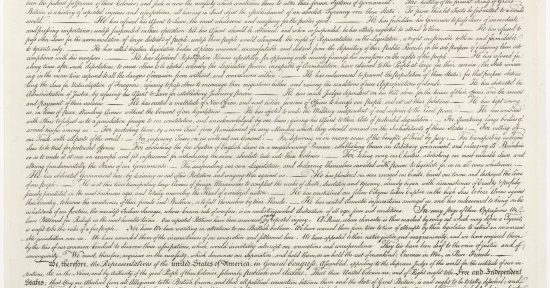 the patient sufferance of these Colonies; and such is now the necessity which constrains them to alter their former Systems of Government. The history of the present King of Great
Britain is a history of repeated injuries and usurpations, all having in direct object the establishment of an absolute Tyranny over these States. To prove this let Facts be submitted to a candid
world. He has refused his Assent to Laws, the most wholesome and necessary for the public good. He has forbidden his Governors to pass Laws of immediate
and pressing importance, unless suspended in their operation till his Assent should be obtained; and when so suspended, he has utterly neglected to attend to them. He has refused to
pass other Laws for the accommodation of large districts of people, unless those people would relinquish the right of Representation in the Legislature, a right inestimable to them and formidable
to tyrants only. He has called together legislative bodies at places unusual, uncomfortable, and distant from the depository of their Public Records, for the sole purpose of fatiguing them into
compliance with his measures. He has dissolved Representative Houses repeatedly, for opposing with manly firmness his invasions on the rights of the people. He has refused for a
long time, after such dissolutions, to cause others to be elected; whereby the Legislative powers, incapable of Annihilation, have returned to the People at large for their exercise; the State remain
ing in the mean time exposed to all the dangers of invasion from without, and convulsions within. He has endeavoured to prevent the population of these States; for that purpose obstruc
ting the Laws for Naturalization of Foreigners; refusing to pass others to encourage their migrations hither, and raising the conditions of new Appropriations of Lands. He has obstructed the
Administration of Justice, by refusing his Assent to Laws for establishing Judiciary powers. He has made Judges dependent on his Will alone, for the tenure of their offices, and the amount
and payment of their salaries. He has erected a multitude of New Offices, and sent hither swarms of Officers to harrass our people, and eat out their substance. He has kept among
us, in times of peace, Standing Armies without the Consent of our legislatures. He has affected to render the Military independent of and superior to the Civil power. He has combined
with others to subject us to a jurisdiction foreign to our constitution, and unacknowledged by our laws; giving his Assent to their Acts of pretended Legislation: For Quartering large bodies of
armed troops among us: For protecting them, by a mock Trial, from punishment for any Murders which they should commit on the Inhabitants of these States: For cutting off
our Trade with all parts of the world: For imposing Taxes on us without our Consent: For depriving us in many cases, of the benefits of Trial by Jury: For transporting us beyond
Seas to be tried for pretended offences: For abolishing the free System of English Laws in a neighbouring Province, establishing therein an Arbitrary government, and enlarging its Boundaries
so as to render it at once an example and fit instrument for introducing the same absolute rule into these Colonies: For taking away our Charters, abolishing our most valuable Laws, and
altering fundamentally the Forms of our Governments: For suspending our own Legislatures, and declaring themselves invested with power to legislate for us in all cases whatsoever.
He has abdicated Government here, by declaring us out of his Protection and waging War against us. He has plundered our seas, ravaged our Coasts, burnt our towns, and destroyed the lives
of our people. He is at this time transporting large Armies of foreign Mercenaries to compleat the works of death, desolation and tyranny, already begun with circumstances of Cruelty & perfidy
scarcely paralleled in the most barbarous ages, and totally unworthy the Head of a civilized nation. He has constrained our fellow Citizens taken Captive on the high Seas to bear Arms against
their Country, to become the executioners of their friends and Brethren, or to fall themselves by their Hands. He has excited domestic insurrections amongst us, and has endeavoured to bring on the
inhabitants of our frontiers, the merciless Indian Savages, whose known rule of warfare, is an undistinguished destruction of all ages, sexes and conditions. In every stage of these Oppressions We
have Petitioned for Redress in the most humble terms: Our repeated Petitions have been answered only by repeated injury. A Prince, whose character is thus marked by every act which may define a Tyrant,
is unfit to be the ruler of a free people. Nor have We been wanting in attentions to our Brittish brethren. We have warned them from time to time of attempts by their legislature to extend an unwarrant
able jurisdiction over us. We have reminded them of the circumstances of our emigration and settlement here. We have appealed to their native justice and magnanimity, and we have conjured them
by the ties of our common kindred to disavow these usurpations, which, would inevitably interrupt our connections and correspondence. They too have been deaf to the voice of justice and of
consanguinity. We must, therefore, acquiesce in the necessity, which denounces our Separation, and hold them, as we hold the rest of mankind, Enemies in War, in Peace Friends.
We, therefore, the Representatives of the united States of America, in General Congress, Assembled, appealing to the Supreme Judge of the world for the rectitude of our in
tentions, do, in the Name, and by Authority of the good People of these Colonies, solemnly publish and declare, That these United Colonies are, and of Right ought to be Free and Independent
States; that they are Absolved from all Allegiance to the British Crown, and that all political connection between them and the State of Great Britain, is and